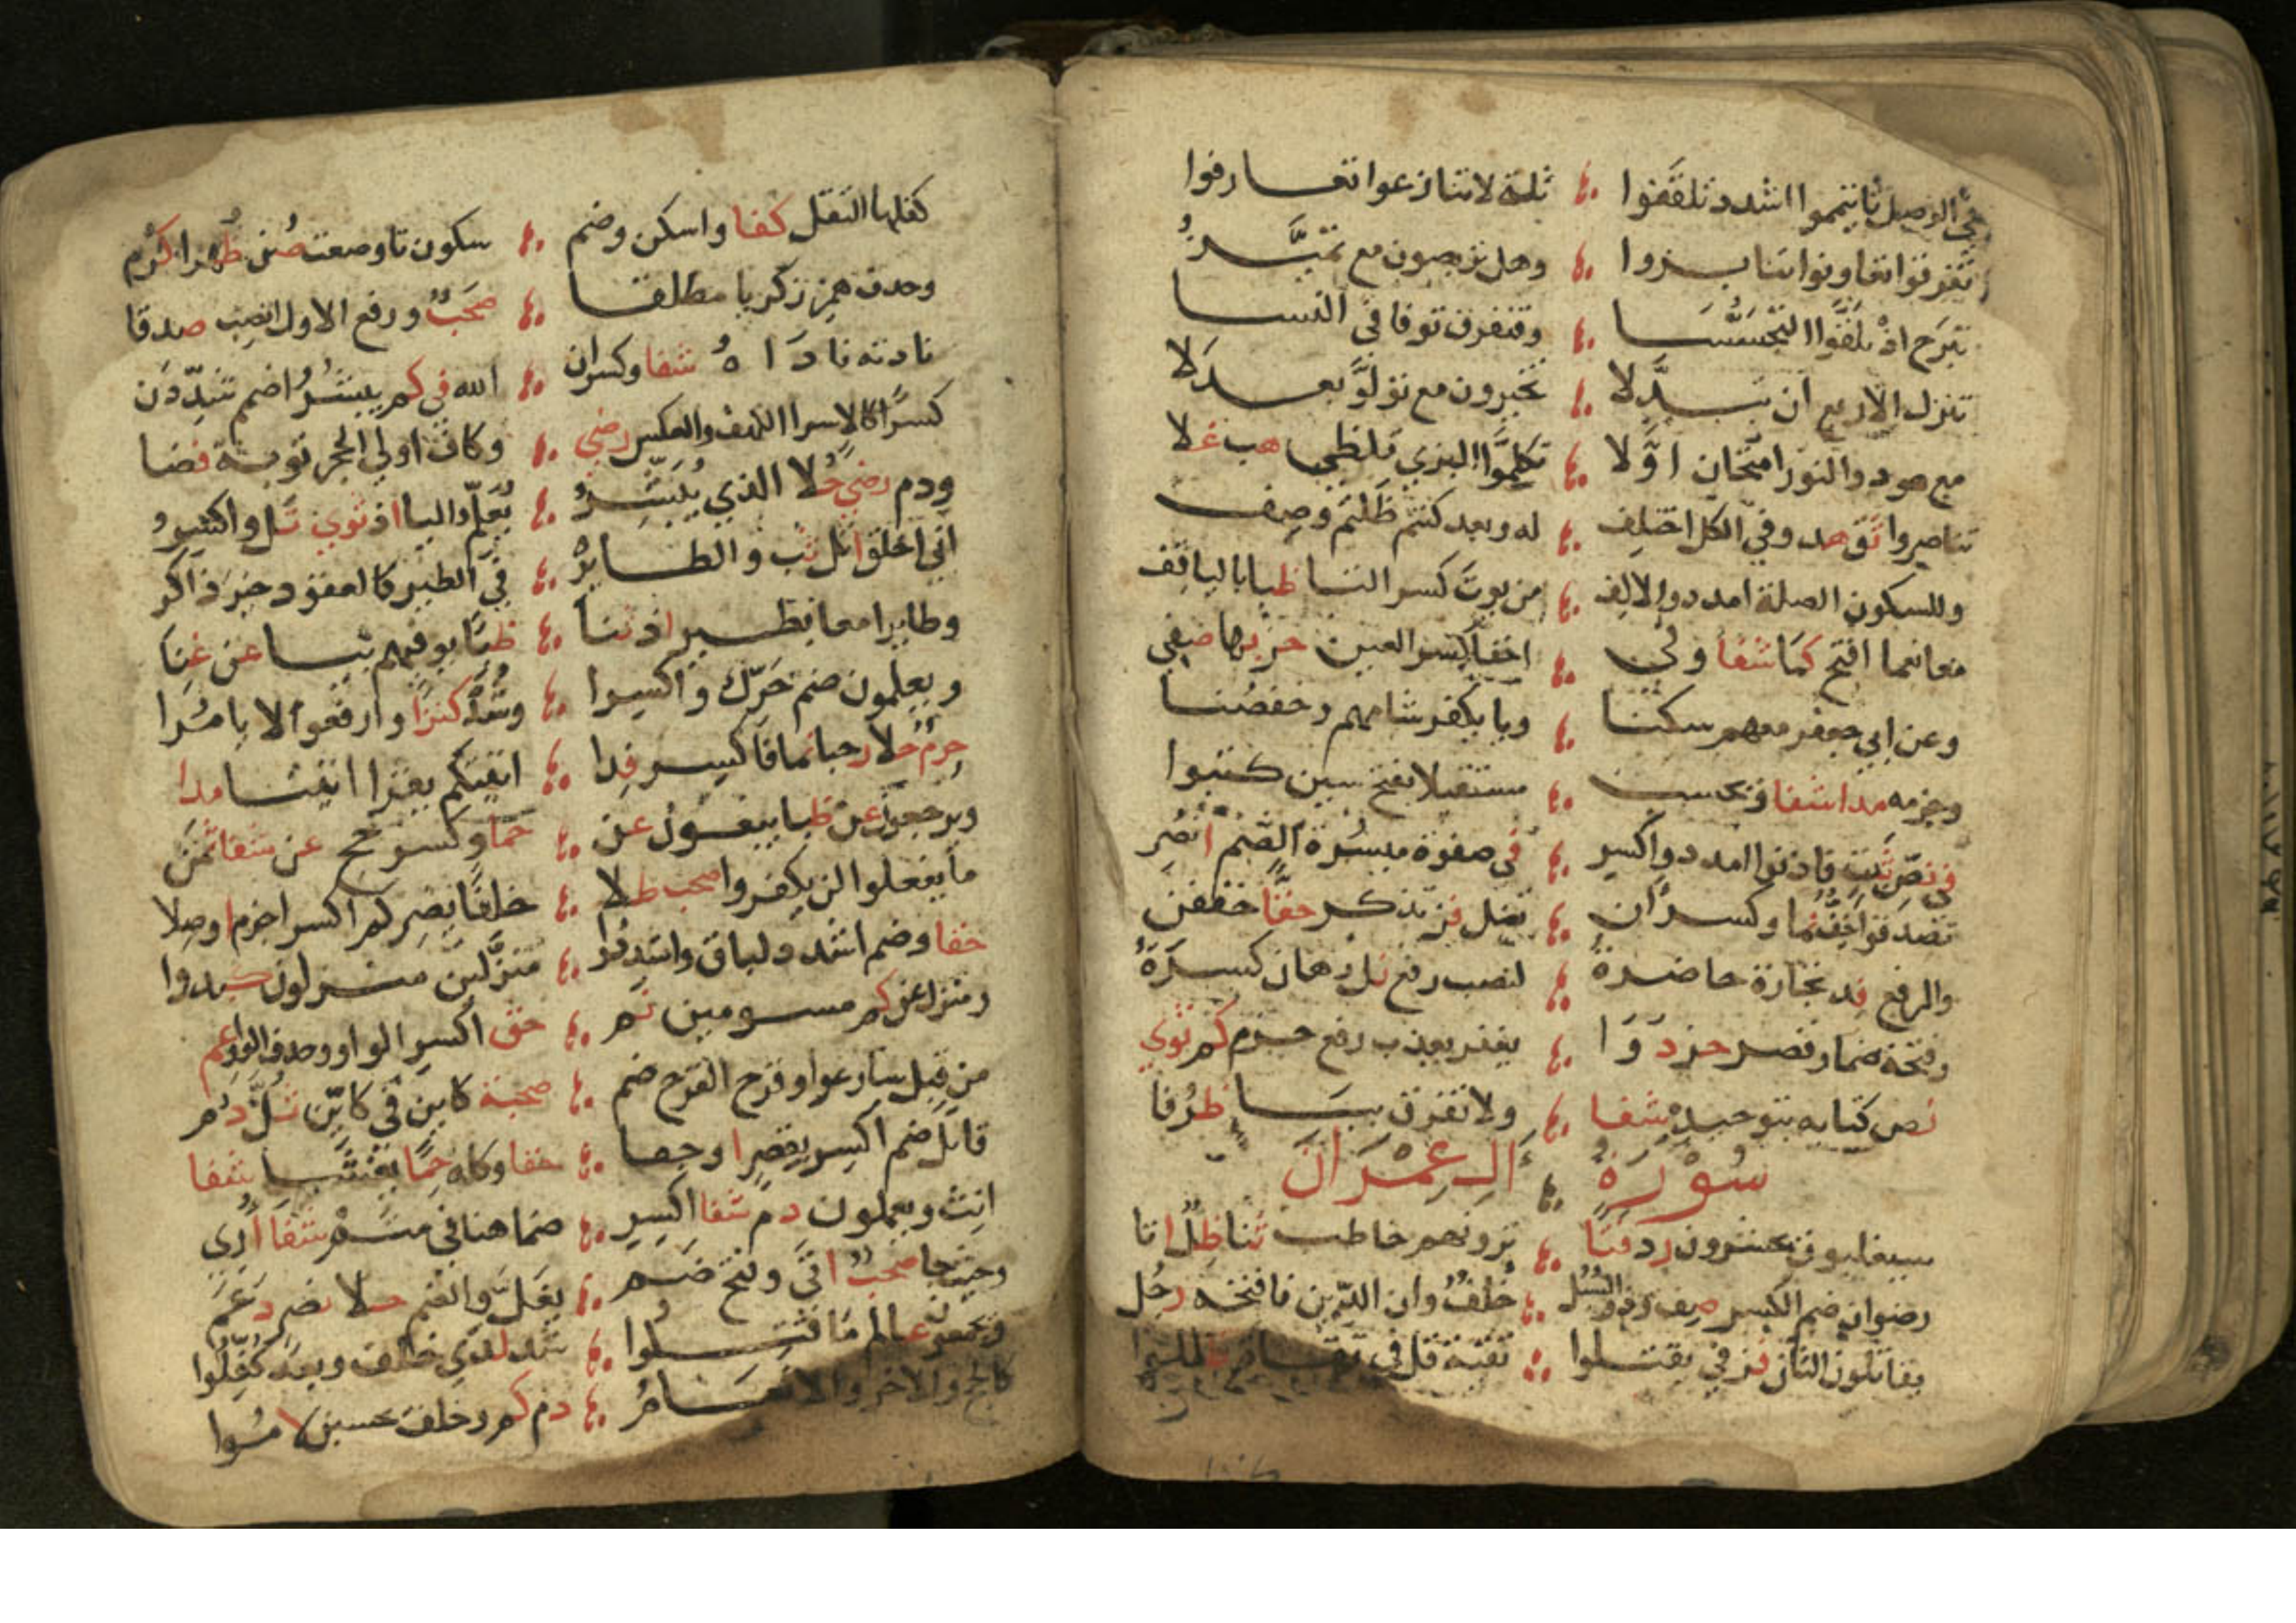 في الوصل تا تيمموا اشدد تلقفوا ؞ تلة لا تنازعوا تعارفوا
تفرقوا تعاونوا تنابزوا ؞ وهل تربصون مع تميز
تبرج اذ تلقوا التجسسا ؞ وفتفرق توفا في النسا
تنزل الاربع ان تبدلا ؞ تخيرون مع تولو بعد لا
مع هود والنور امتحان اولا ؞ تكلم البزي تلظى هب غلا
تناصروا ثق هد وفي الكل اختلف ؞ له وبعد كنتم ظلتم وصف
وللسكون الصلة امدد والالف ؞ من يوت كسر التا ظبا باليا قف
معا نعما افتح كما شفا وفي ؞ اخفا كسر العين حز بها صفي
وعن ابي جعفر معهم سكنا ؞ ويا يكفر شامهم وحفصنا
وجزمه مدا شفا ويحسب ؞ مستقبلا بفتح سين كتبوا
في نص ثبت فاذنوا امدد واكسر ؞ في صفوة ميسرة الضم انصر
تصدقوا خف نما وكسر ان ؞ تضل فز تذكر حقا خففن
والرفع فد تجارة حاضرة ؞ لنصب رفع نل رهان كسرة
وفتحة ضما وقصر حز دوا ؞ يغفر يعذب رفع جزم كم ثوى
نص كتابه بتوحيد شفا ؞ ولا نفرق بيا ظرفا
سورة ؞ ال عمران
سيغلبون يحشرون رد فتا ؞ يرونهم خاطب ثنا ظل اتا
رضوان ضم الكسر صف وذو السبل ؞ خلف وان الدين فافتحه رجل
يقاتلون الثان فز في يقتلوا ؞ تقية قل في تقاة
كفلها الثقل كفا واسكن وضم ؞ سكون تا وضعت صن ظهرا كرم
وحذف همز زكريا مطلقا ؞ صحب ورفع الاول انصب صدقا
نادته ناداه شفا وكسر ان ؞ الله في كم يبشر اضمم شددن
كسرا كالاسرا الكهف والعكس رضي ؞ وكاف اولي الحجر توبة فضا
ودم رضي حلا الذي يبشر ؞ يعلم واليا اذ ثوى نل واكسروا
اني اخلق اتل ثب والطاير ؞ في الطير كالعقود خير ذاكر
وطايرا معا بطير اذ ثنا ؞ ظبا يوفيهم بيا عن غنا
ويعلمون ضم حرك واكسروا ؞ وشد كنزا وارفعوا لا يامرا
حرم حلا رحبا لما فاكسر فدا ؞ اتيتكم يقرا اتينا مدا
ويرجعون عن ظبا يبغون عن ؞ حما وكسر حج عن شفا ثمن
ما يفعلوا لن يكفروا صحب طلا ؞ خلفا يضركم اكسر اجزم اوصلا
حقا وضم اشدد لباق واشددوا ؞ منزلين منزلون كبدوا
ومنزل عن كم مسومين نم ؞ حق اكسر الواو وحذف الواو عم
من قبل سارعوا وقرح القرح ضم ؞ صحبة كاين في كاين ثل دم
قاتل ضم اكسر بقصر اوجفا ؞ حقا وكله حما يغشى شفا
انث ويعملون دم شفا اكسر ؞ ضما هنا في متم شفا اري
وحيث جا صحب اتى وفتح ضم ؞ يغل والضم حلا نصر دعم
ويجمعون عالم ما قتلوا ؞ شد لدى خلف وبعد كفلوا
كالحج والاخر والانعام ؞ دم كم وخلف يحسبن لاموا